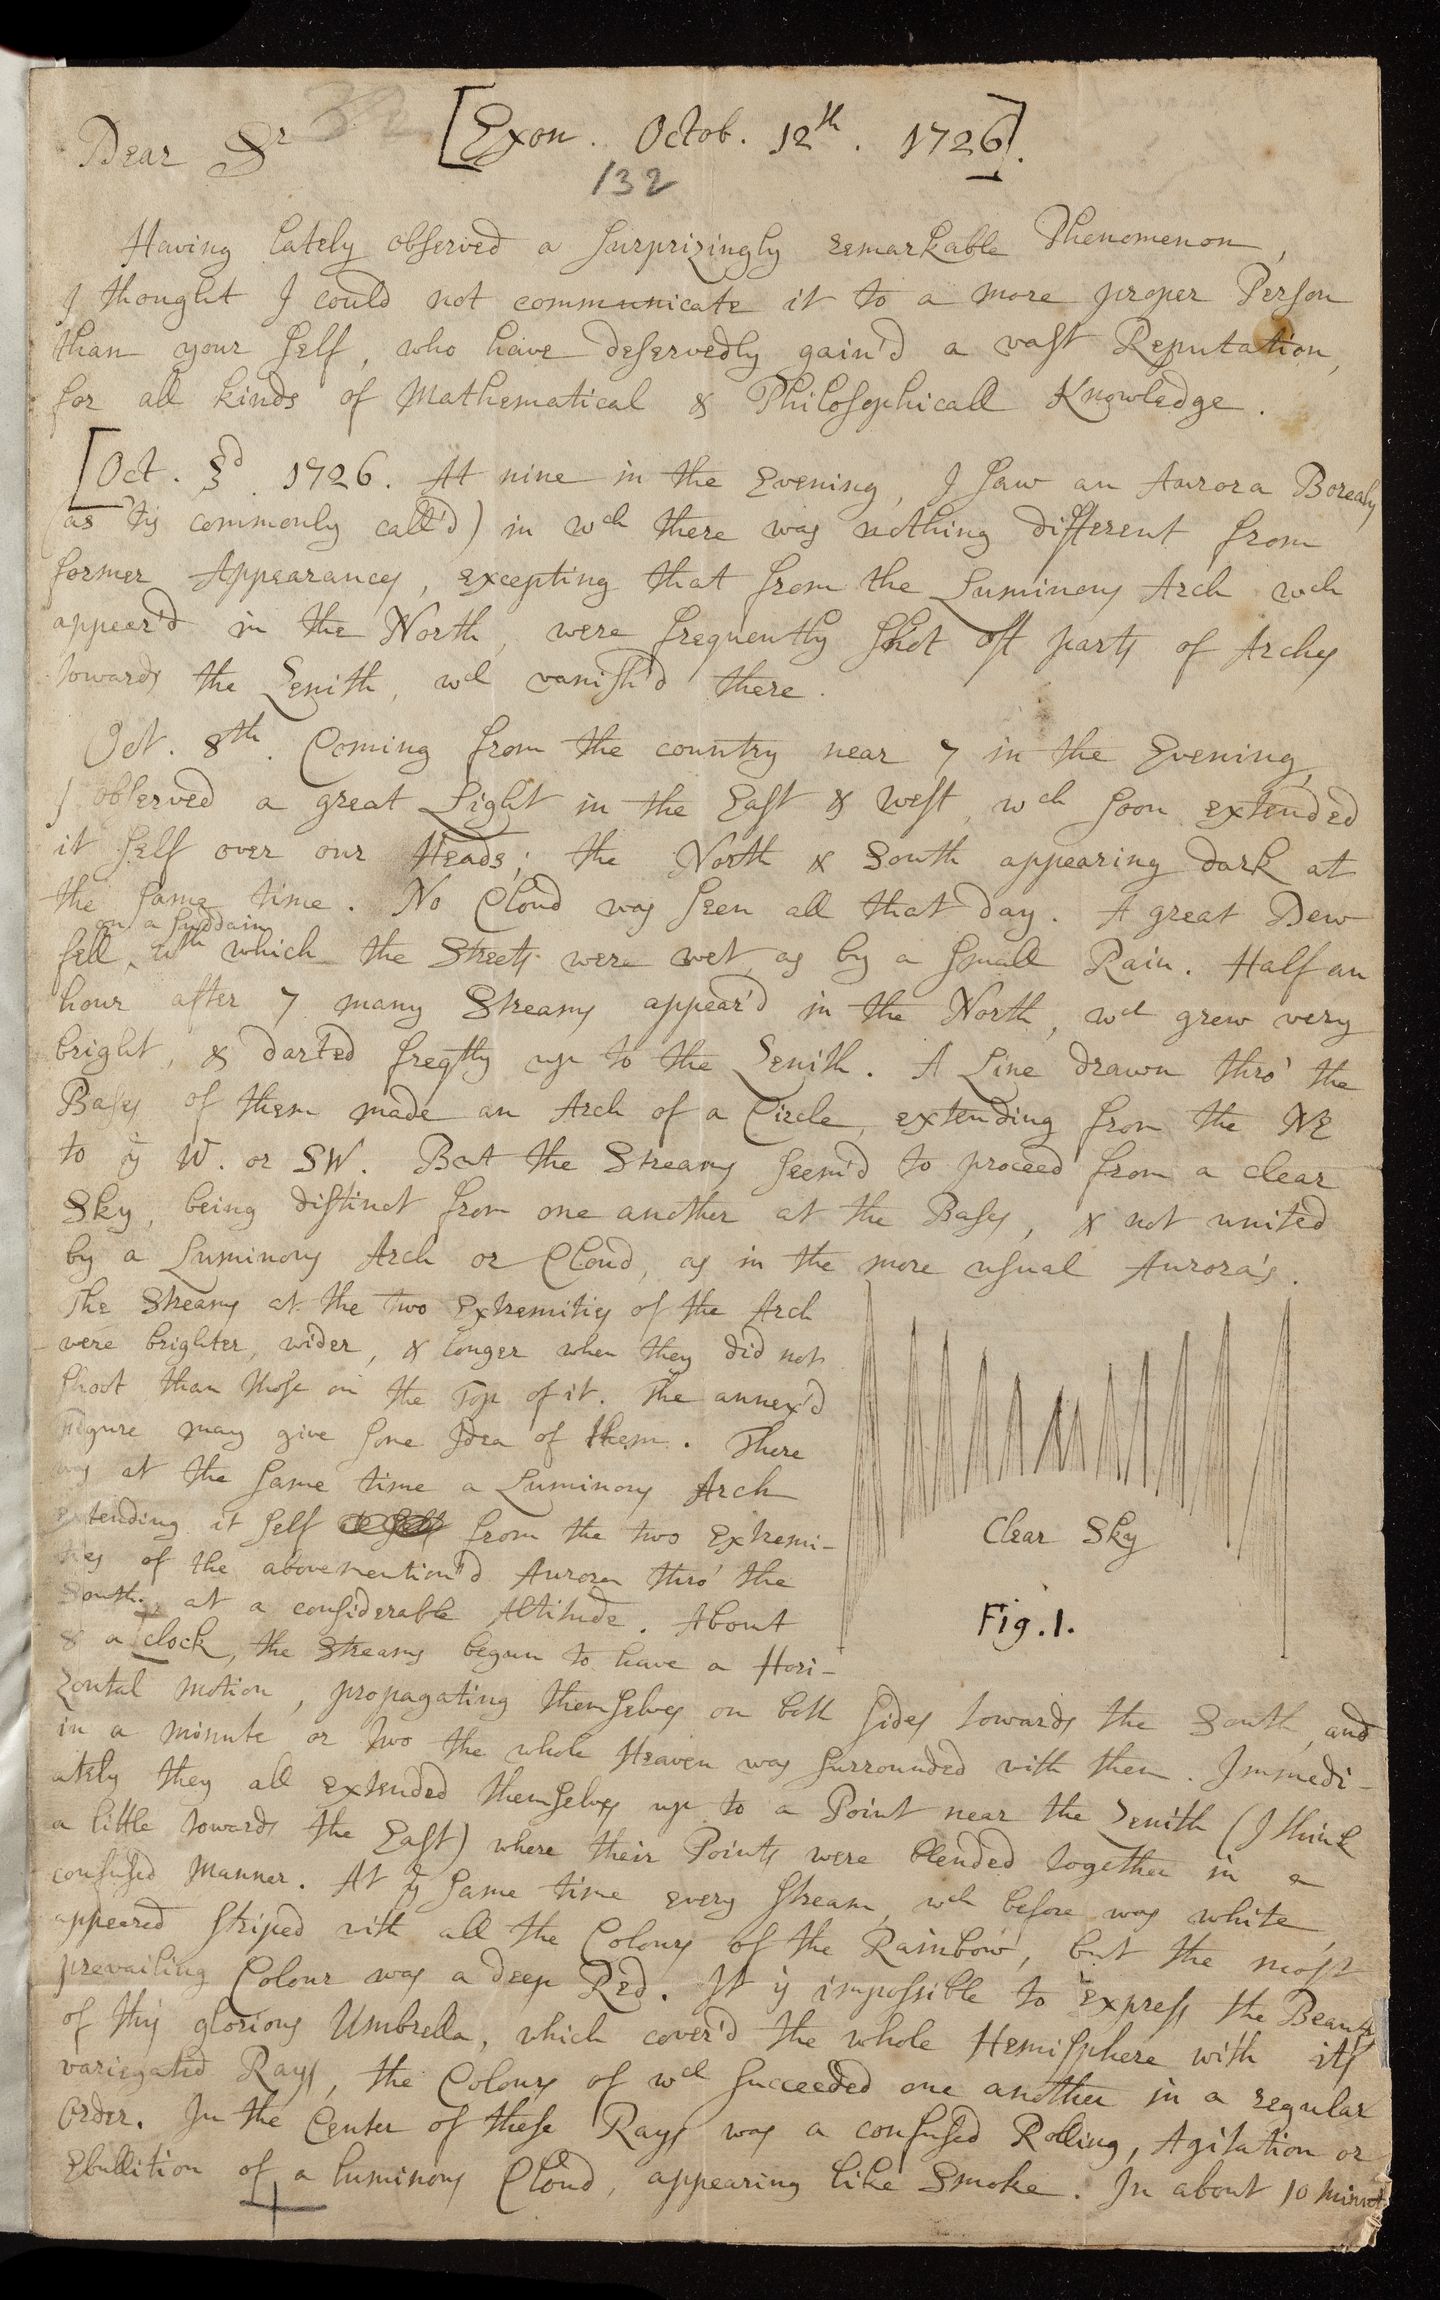 Dear Sr [Exon. Octob. 12th. 1726].
132
Having lately observed a surprizingly remarkable Phenomenon,
I thought I could not communicate it to a more proper Person
than your self, who have deservedly gain'd a vast Reputation,
for all kinds of Mathematical & Philosophicall Knowledge.
[Oct. 3d. 1726. At nine in the Evening, I saw an Aurora Borealis
(as 'tis commonly call'd) in wch there was nothing different from
former Appearances, excepting that from the Luminous Arch wch
appeer'd in the North, were frequently shot off parts of Arches
towards the Zenith, wch vanish'd there.
Oct. 8th. Coming from the country near 7 in the Evening,
I observed a great Light in the East & West, wch soon extended
it self over our Heads; the North & South appearing dark at
the same time. No Cloud was seen all that day. A great Dew
on a suddain
fell, wth which the Streets were wet, as by a small Rain. Half an
hour after 7 many Streams appear'd in the North, wch grew very
bright, & darted freqtly up to the Zenith. A Line drawn thro' the
Bases of them made an Arch of a Circle, extending from the NE
to ye W. or SW. But the Streams seem'd to proceed from a clear
Sky, being distinct from one another at the Bases, & not united
by a Luminous Arch or Cloud, as in the more usual Aurora's.
The Streams at the two Extremities of the Arch
were brighter, wider, & longer when they did not
shoot than those on the Top of it. The annex'd
Figure may give some Idea of them. There
was at the same time a Luminous Arch
extending it self from the two Extremi-
ties of the abovemention'd Aurora thro' the
South, at a considerable Altitude. About
8 a Clock, the Streams begun to have a Hori-
zontal motion, propagating themselves on both sides towards the South, and
in a minute or two the whole Heaven was surrounded with them. Immedi-
ately they all extended themselves up to a Point near the Zenith (I think
a little towards the East) where their Points were blended together in a
confused Manner. At ye same time every stream, wch before was white,
appeared striped with all the Colours of the Rainbow, but the most
prevailing Colour was a deep Red. It is impossible to express the Beauty
of this glorious Umbrella, which cover'd the whole Hemisphere with its
variegated Rays, the Colours of wch succeeded one another in a regular
Order. In the Center of these Rays was a confused Rolling, Agitation or
Ebullition of a luminous Cloud, appearing like Smoke. In about 10 minut
Clear Sky
Fig. 1.